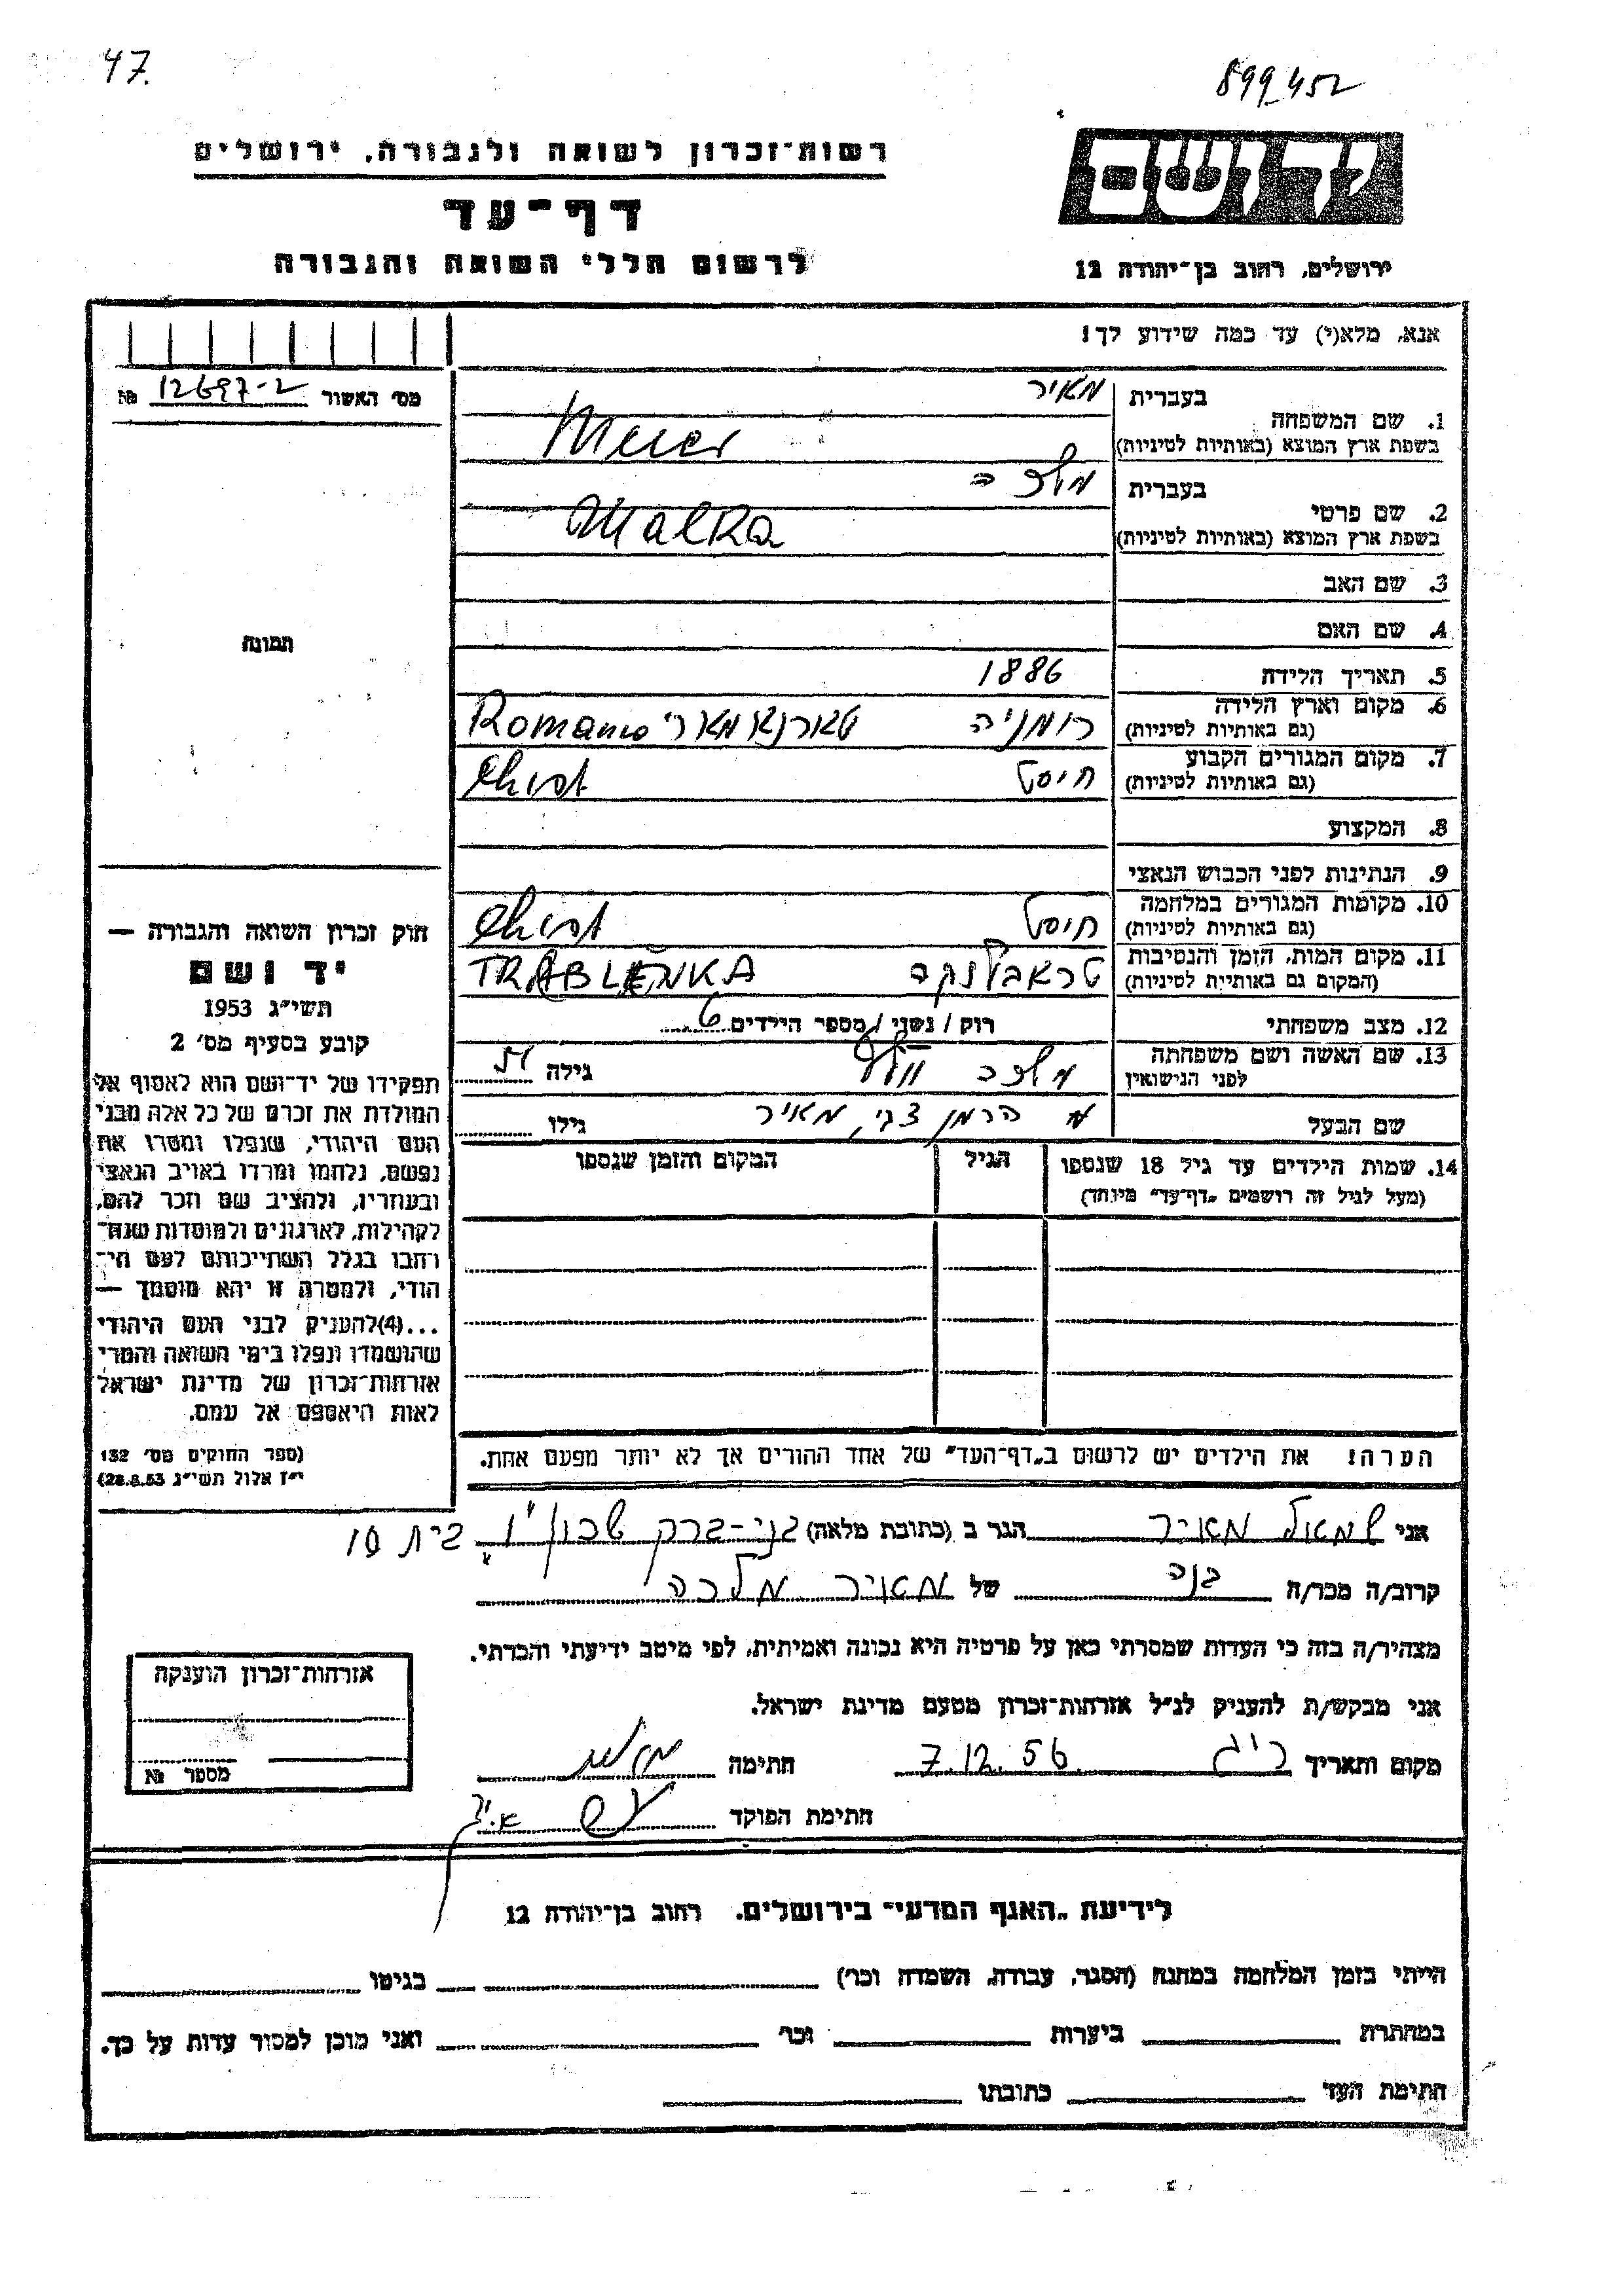 47.
899452
רשות-זכרון לשואה ולגבורה, ירושלים
דף-עד
לרשום חללי השואה והגבורה
יד ושם
ירושלים, רחוב בן-יהודה 12
אנא, מלא(י) עד כמה שידוע לך!
מס' האשור 12697-2 №
תמונה
1. שם המשפחה
בעברית מאיר
בשפת ארץ המוצא (באותיות לטיניות) Meier
2. שם פרטי
בעברית מלכה
בשפת ארץ המוצא (באותיות לטיניות) Malka
3. שם האב
4. שם האם
5. תאריך הלידה 1886
6. מקום וארץ הלידה רומניה
(גם באותיות לטיניות) Romania
7. מקום המגורים הקבוע חוסט
(גם באותיות לטיניות) Chust
8. המקצוע
9. הנתינות לפני הכבוש הנאצי
10. מקומות המגורים במלחמה חוסט
(גם באותיות לטיניות) Chust
11. מקום המות, הזמן והנסיבות טראבלנקה
(המקום גם באותיות לטיניות) TRABLENKA
12. מצב משפחתי רוק / נשוי / מספר הילדים 6
13. שם האשה ושם משפחתה מלכה
לפני הנישואין גילה
שם הבעל הרמן צבי, מאיר גילו
14. שמות הילדים עד גיל 18 שנספו הגיל המקום והזמן שנספו
(מעל לגיל זה רושמים „דף-עד" מיוחד)
הערה! את הילדים יש לרשום ב„דף-העד" של אחד ההורים אך לא יותר מפעם אחת.
חוק זכרון השואה והגבורה —
יד ושם
תשי"ג 1953
קובע בסעיף מס' 2
תפקידו של יד-ושם הוא לאסוף אל
המולדת את זכרם של כל אלה מבני
העם היהודי, שנפלו ומסרו את
נפשם, נלחמו ומרדו באויב הנאצי
ובעוזריו, ולהציב שם וזכר להם,
לקהילות, לארגונים ולמוסדות שנח-
רבו בגלל השתייכותם לעם הי-
הודי, ולמטרה זו יהא מוסמך —
...(4)להעניק לבני העם היהודי
שהושמדו ונפלו בימי השואה והמרי
אזרחות-זכרון של מדינת ישראל
לאות היאספם אל עמם.
(ספר החוקים מס' 132
י"ז אלול תשי"ג 28.8.53)
אני שמואל מאיר הגר ב (כתובת מלאה) בני-ברק שכון ו' בית 10
קרוב/ה מכר/ה בנה של מאיר מלכה
מצהיר/ה בזה כי העדות שמסרתי כאן על פרטיה היא נכונה ואמיתית, לפי מיטב ידיעתי והכרתי.
אני מבקש/ת להעניק לנ"ל אזרחות-זכרון מטעם מדינת ישראל.
מקום ותאריך 7.12.56 חתימה
חתימת הפוקד
אזרחות-זכרון הוענקה
מספר №
לידיעת „האגף המדעי" בירושלים, רחוב בן-יהודה 12
הייתי בזמן המלחמה במחנה (הסגר, עבודה, השמדה וכו') בגיטו
במחתרת ביערות וכו' ואני מוכן למסור עדות על כך.
חתימת העד כתובתו